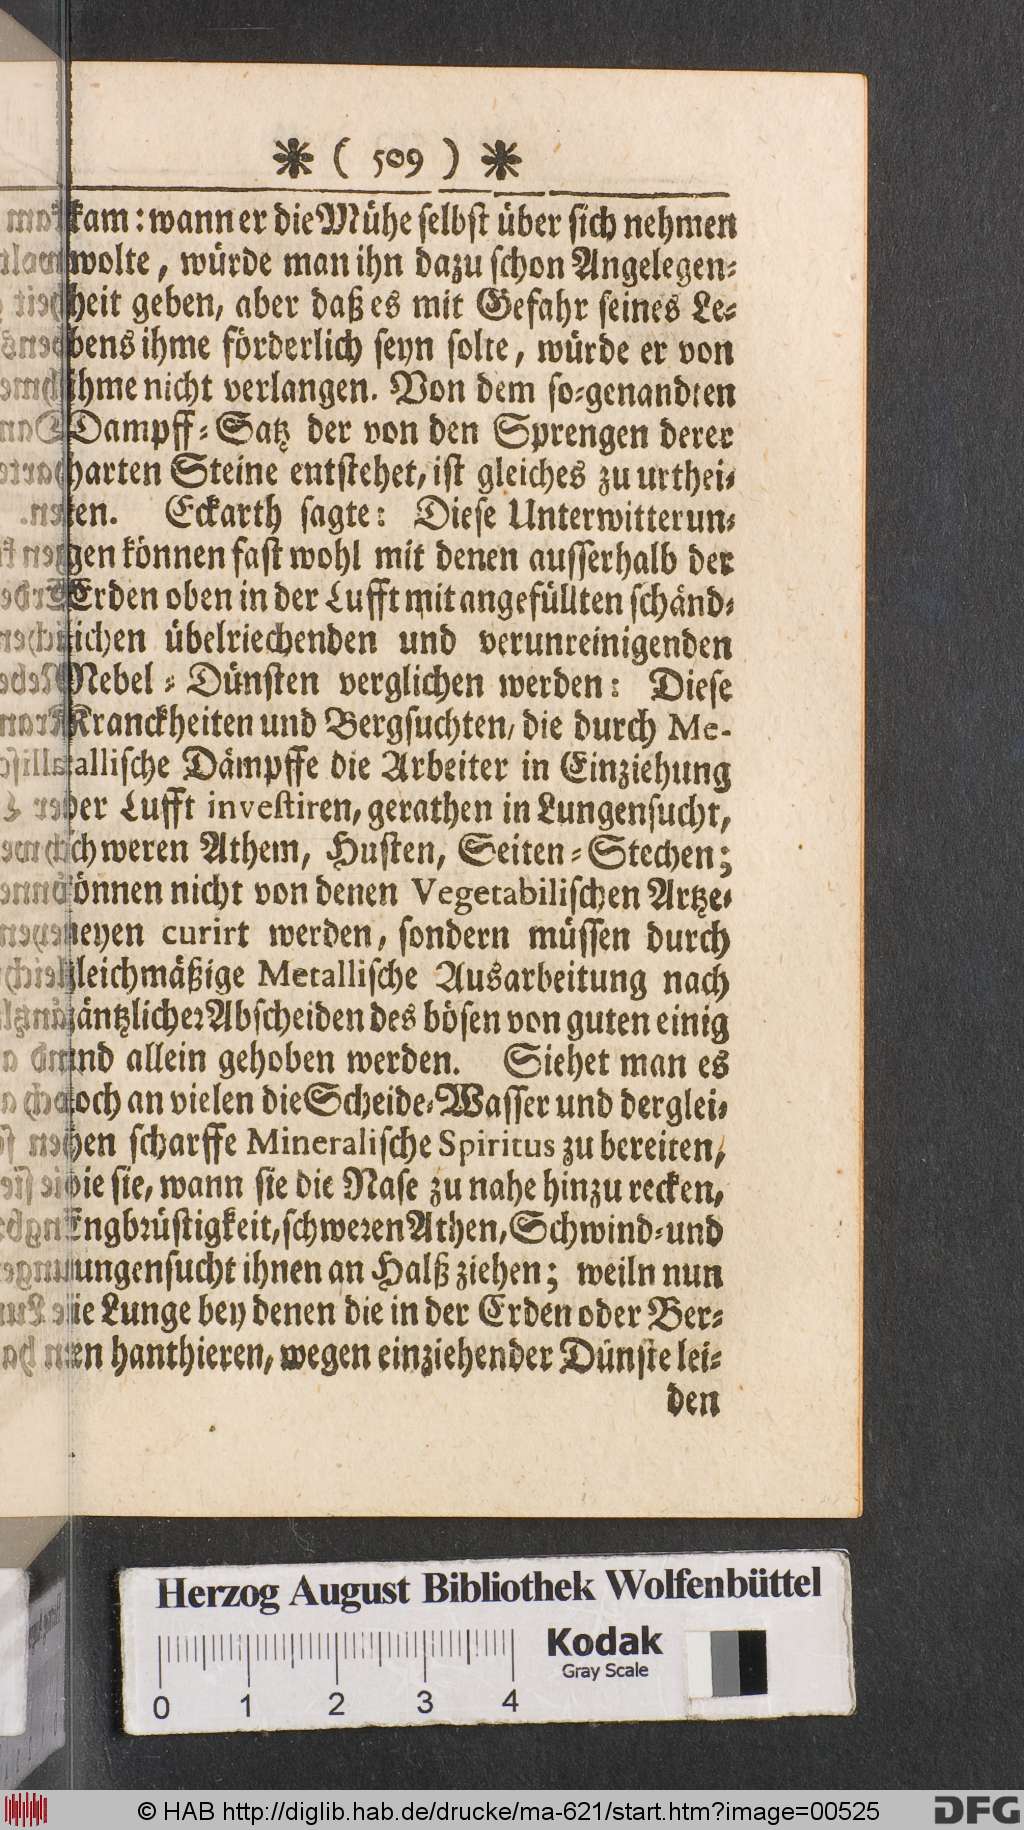 * ( 509 ) *
kam: wann er die Mühe selbst über sich nehmen
wolte, würde man ihn dazu schon Angelegen-
heit geben, aber daß es mit Gefahr seines Le-
bens ihme förderlich seyn solte, würde er von
ihme nicht verlangen. Von dem so-genandten
Dampff-Satz der von den Sprengen derer
harten Steine entstehet, ist gleiches zu urthei-
len. Eckarth sagte: Diese Unterwitterun-
gen können fast wohl mit denen ausserhalb der
Erden oben in der Lufft mit angefüllten schänd-
lichen übelriechenden und verunreinigenden
Nebel-Dünsten verglichen werden: Diese
Kranckheiten und Bergsuchten, die durch Me-
tallische Dämpffe die Arbeiter in Einziehung
der Lufft investiren, gerathen in Lungensucht,
schweren Athem, Husten, Seiten-Stechen;
können nicht von denen Vegetabilischen Artze-
neyen curirt werden, sondern müssen durch
gleichmäßige Metallische Ausarbeitung nach
gäntzlicher Abscheiden des bösen von guten einig
und allein gehoben werden. Siehet man es
doch an vielen die Scheide-Wasser und derglei-
chen scharffe Mineralische Spiritus zu bereiten,
wie sie, wann sie die Nase zu nahe hinzu recken,
Engbrüstigkeit, schweren Athen, Schwind- und
Lungensucht ihnen an Halß ziehen; weiln nun
die Lunge bey denen die in der Erden oder Ber-
gen hanthieren, wegen einziehender Dünste lei-
den
Herzog August Bibliothek Wolfenbüttel
Kodak
Gray Scale
0 1 2 3 4
© HAB http://diglib.hab.de/drucke/ma-621/start.htm?image=00525
DFG